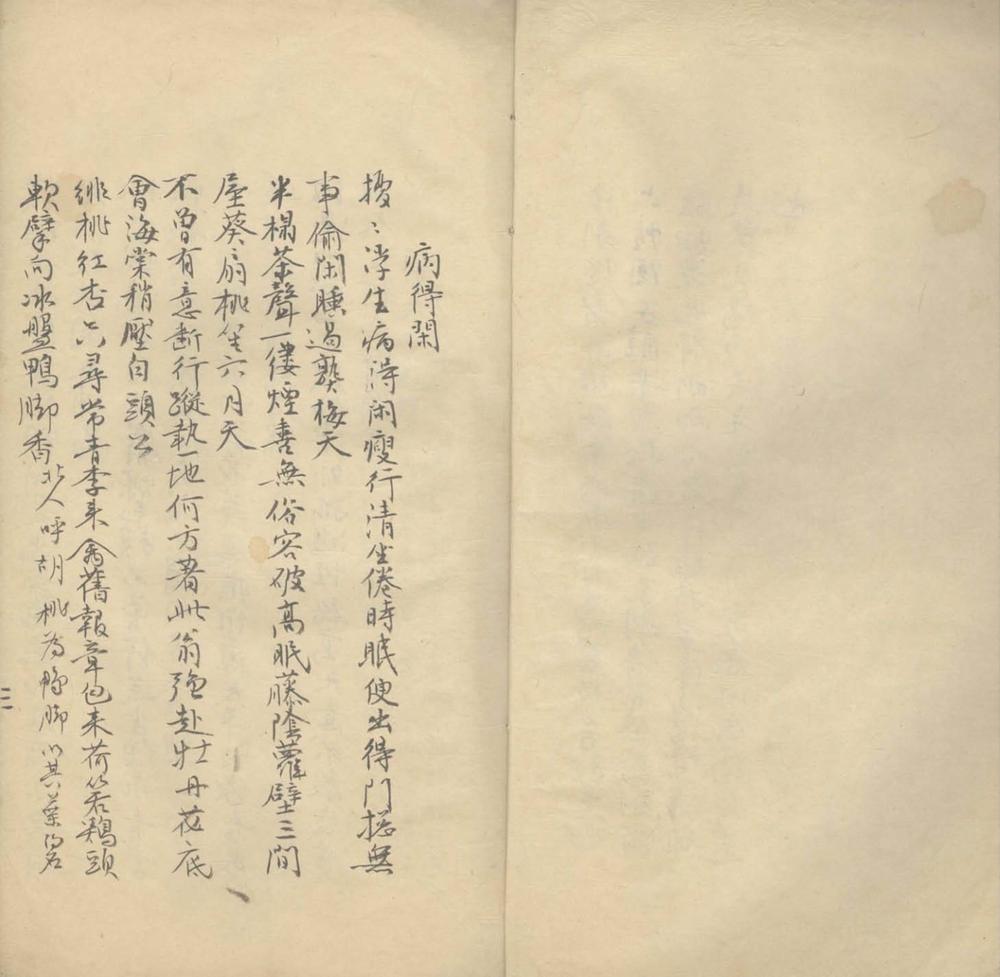 病得閑
擾〻浮生病得闲瘦行清坐倦時眠便出得門揔無
事偷閑睡過熟梅天
半榻茶聲一縷煙喜無俗客破高眠藤陰蘿壁三間
屋葵扇桃笙六月天
不曾有意断行蹤執地何方著此翁強赴牡丹花底
會海棠稍壓白頭公
緋桃红杏六尋常青李来禽舊報章包来荷箬鷄頭
軟擘向冰盤鴨脚香北人呼胡桃為鴨脚以其葉名
三